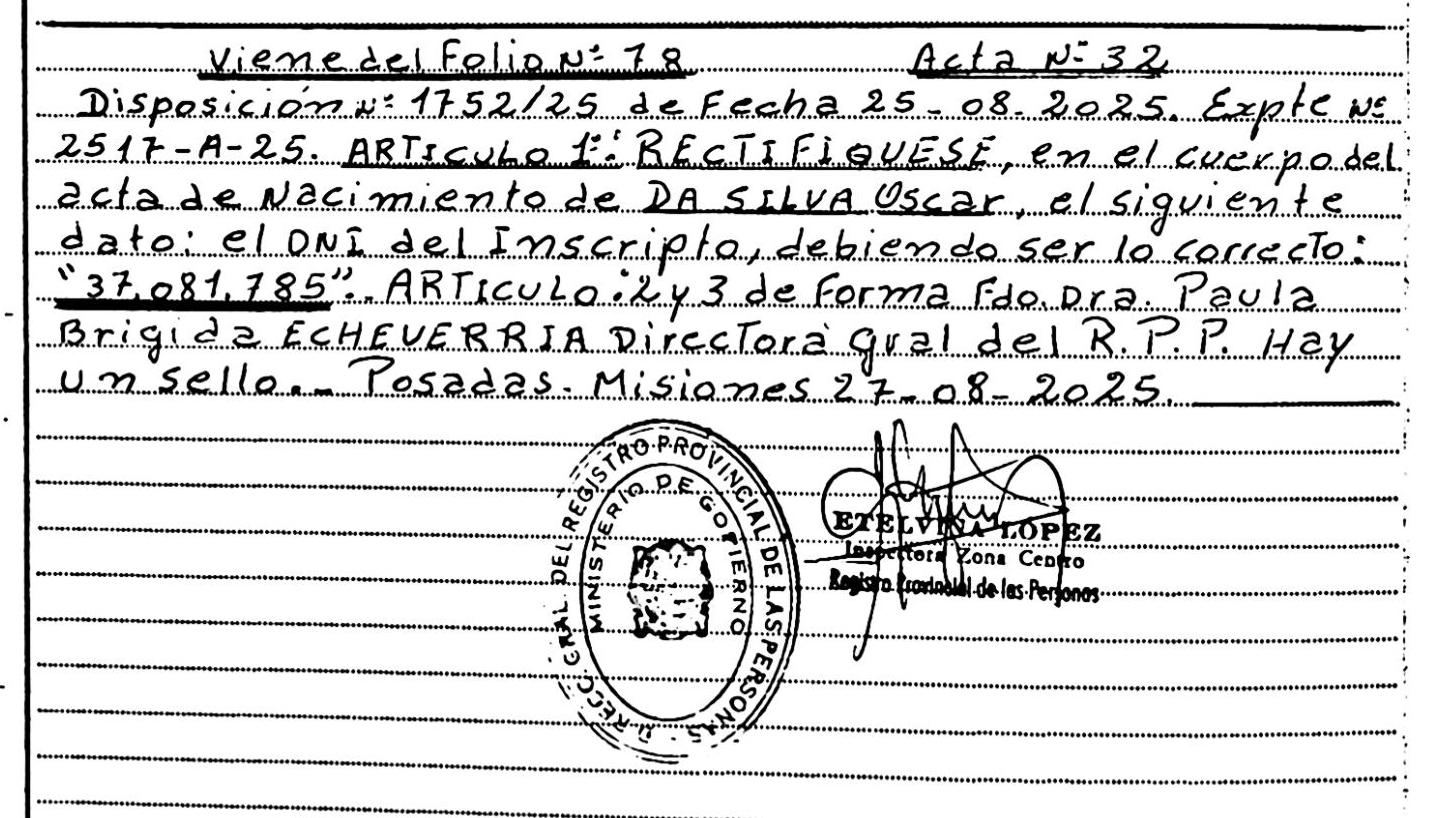 Viene del Folio Nº 78 Acta Nº 32
Disposición Nº 1752/25 de Fecha 25-08-2025. Expte Nº
2517-A-25. ARTICULO 1º: RECTIFIQUESE, en el cuerpo del
acta de Nacimiento de DA SILVA Oscar, el siguiente
dato: el DNI del Inscripto, debiendo ser lo correcto:
"37.081.785".- ARTICULO: 2 y 3 de Forma Fdo. Dra. Paula
Brigida ECHEVERRIA Directora Gral del R.P.P. Hay
un sello.- Posadas - Misiones 27-08-2025.
RECC. GRAL. DEL REGISTRO PROVINCIAL DE LAS PERSONAS
MINISTERIO DE GOBIERNO
ETELVINA LOPEZ
Inspectora Zona Centro
Registro Provincial de las Personas